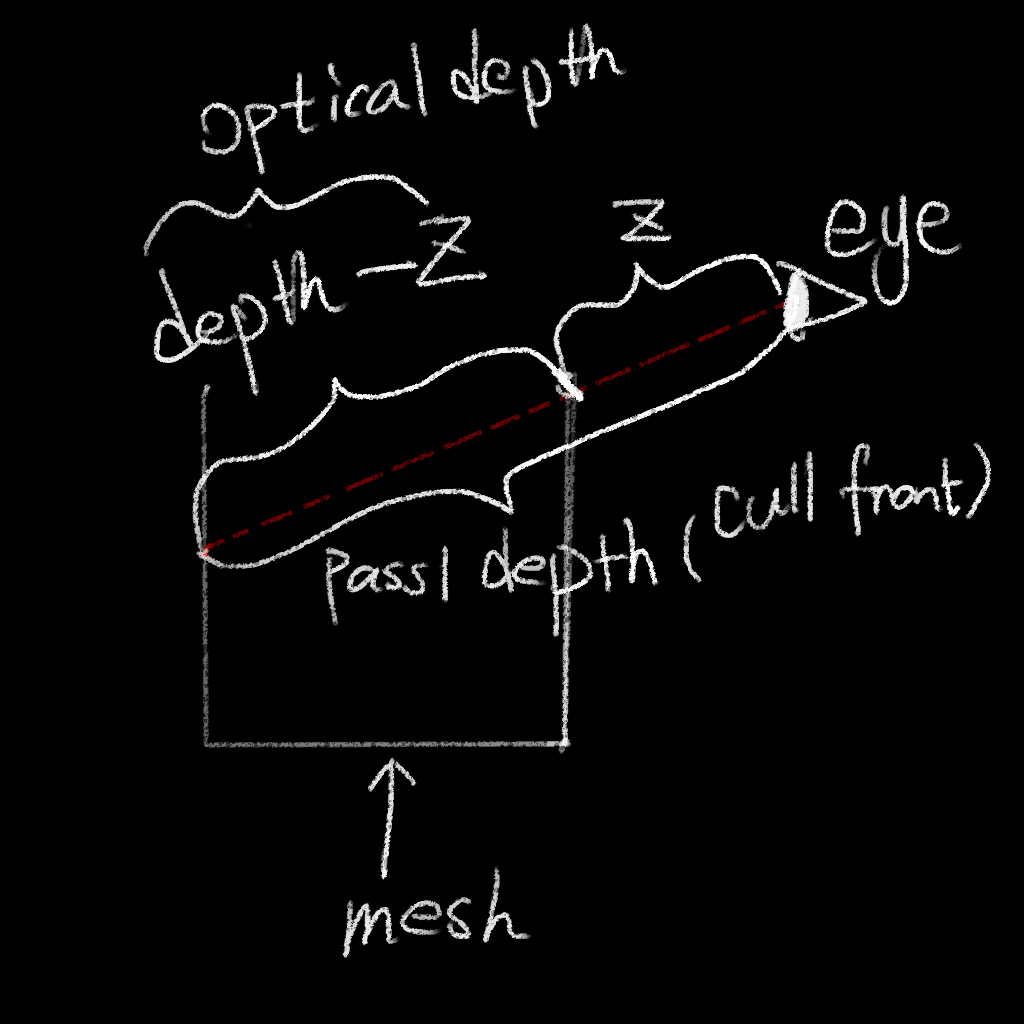 optical depth
depth - z
z
eye
pass1 depth (cull front)
mesh